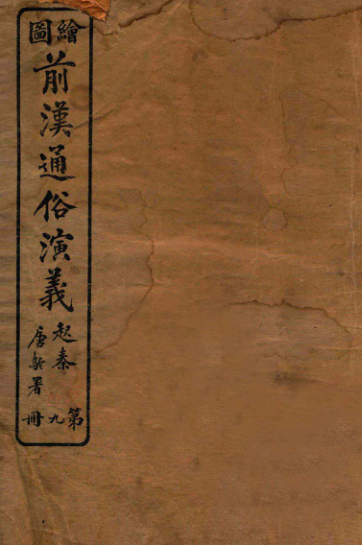 繪圖
前漢通俗演義
起秦
唐新署
第九冊